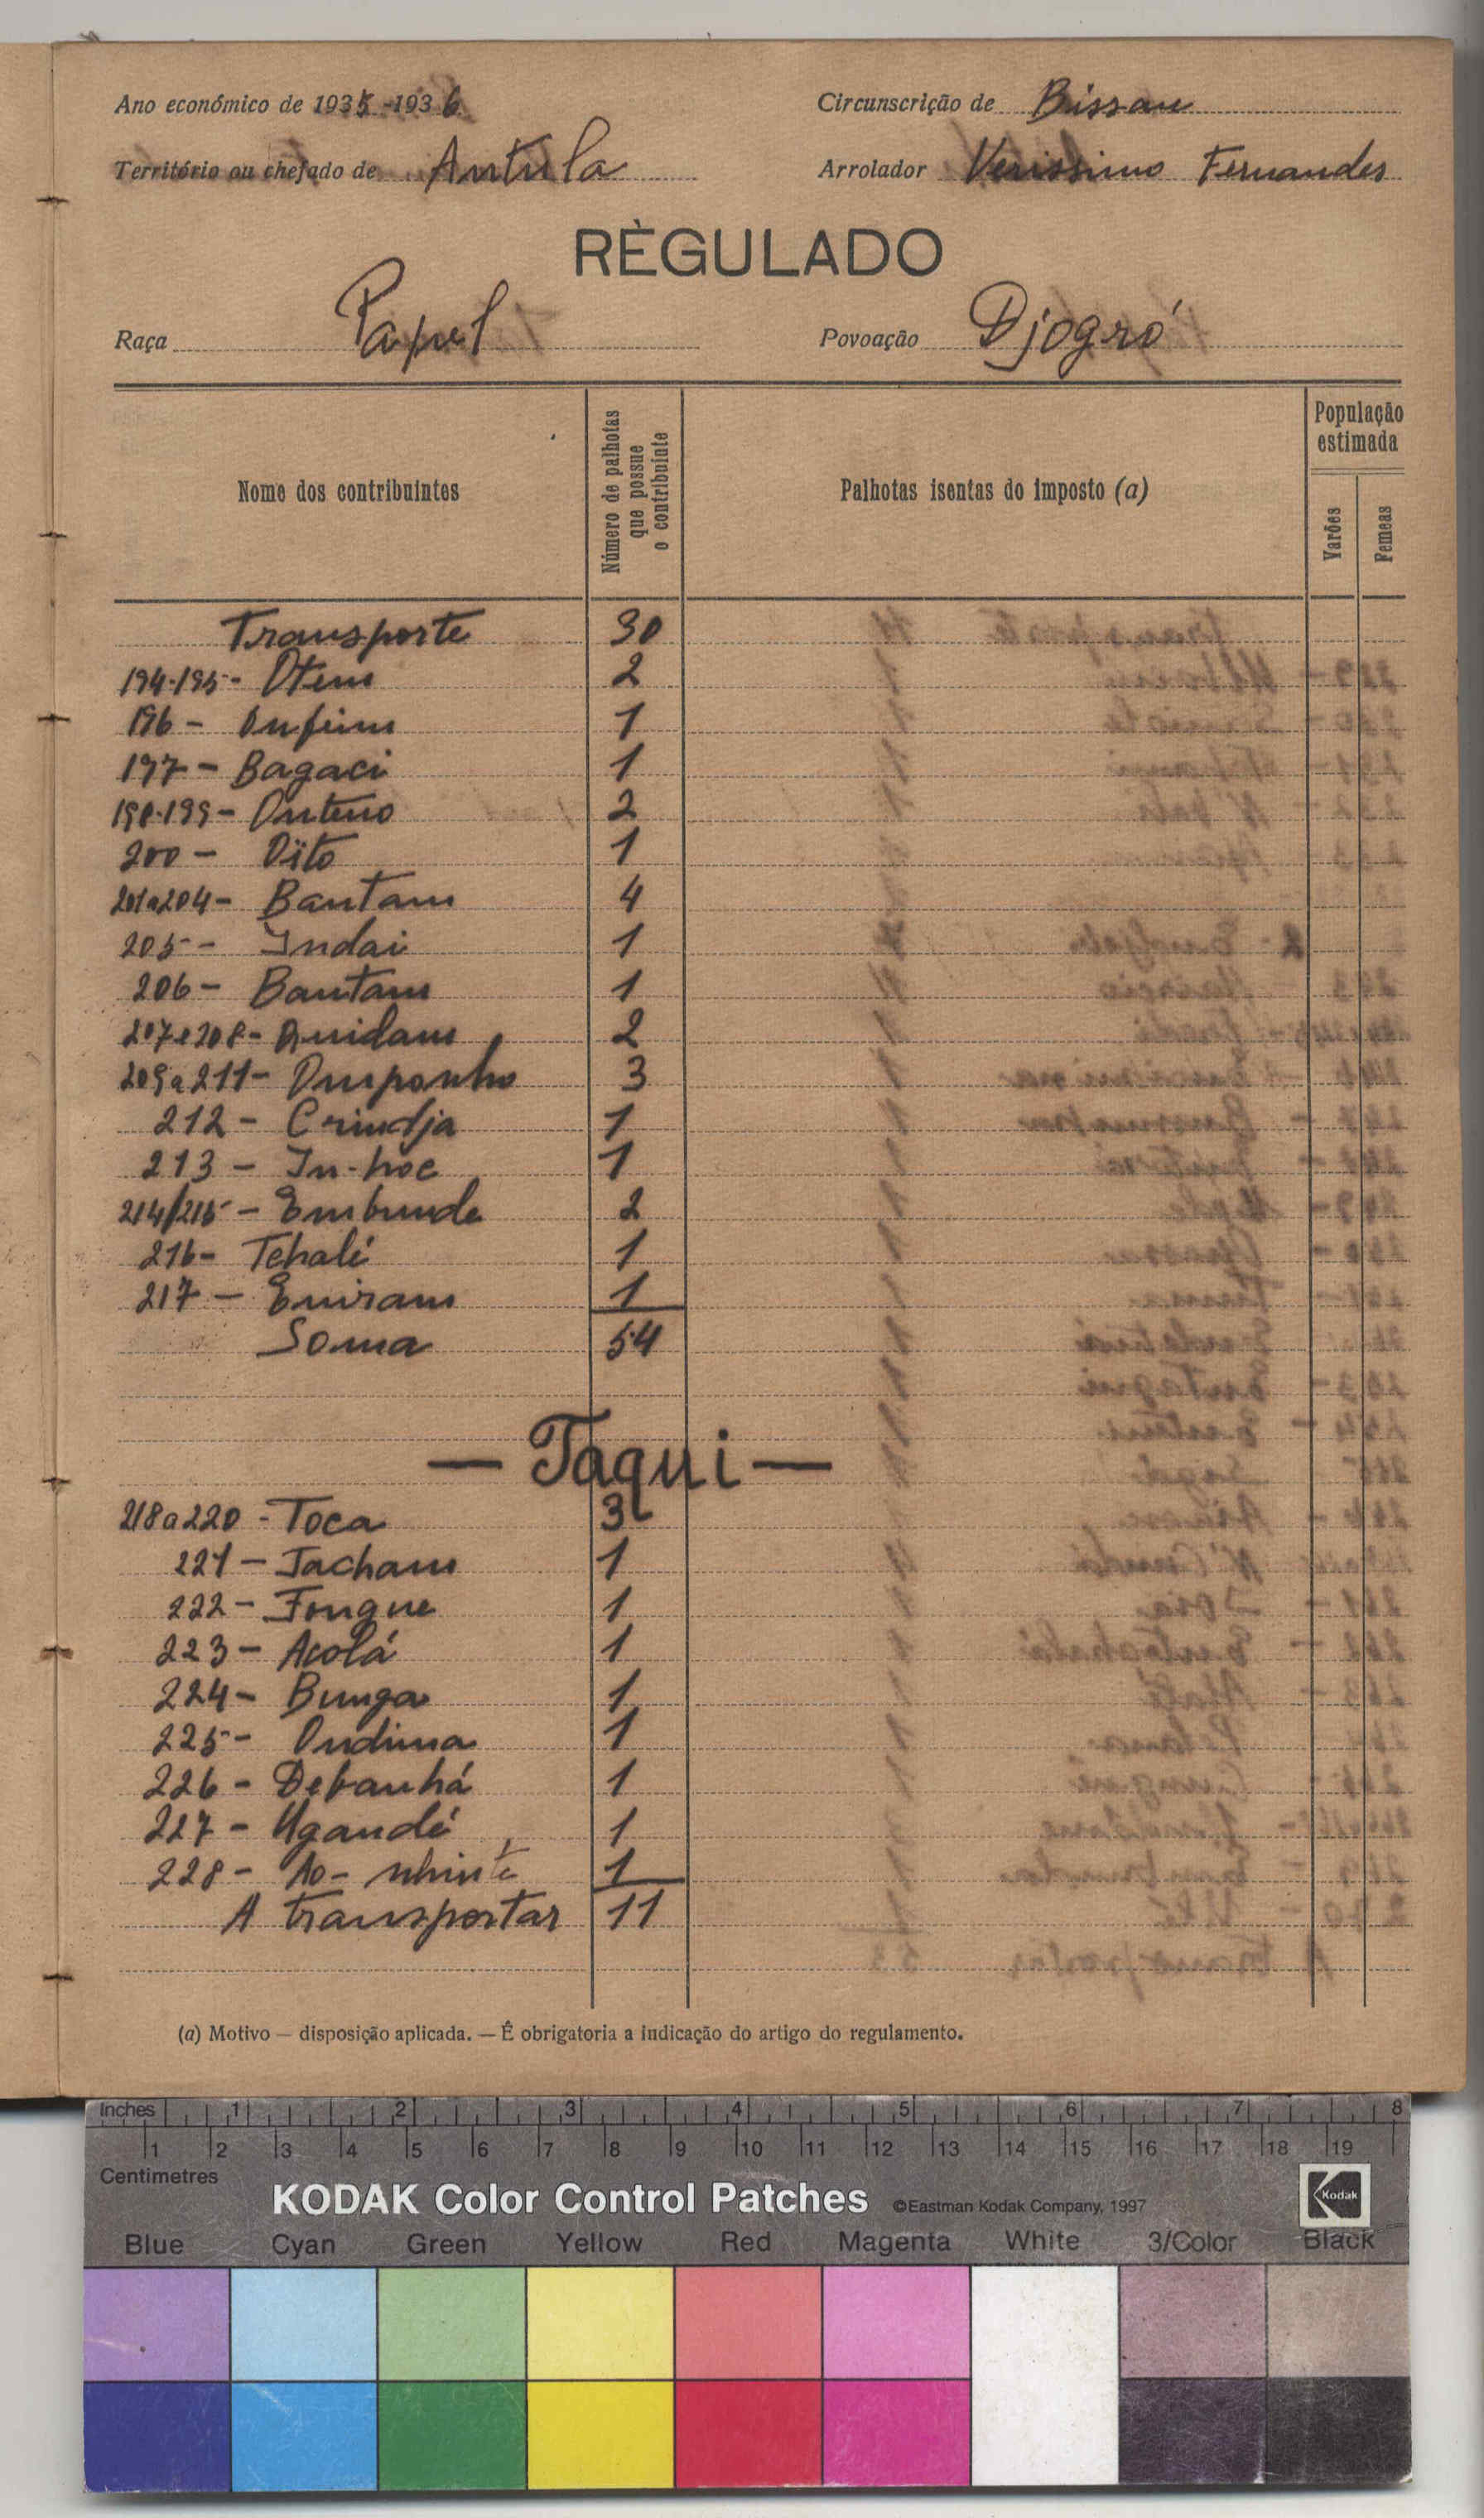 Ano económico de 1935-1936
Circunscrição de Bissau
Território ou chefado de Antula
Arrolador Verissimo Fernandes
RÈGULADO
Raça Papel
Povoação Djogró
Nome dos contribuintes
Número de palhotas que possue o contribuinte
Palhotas isentas do imposto (a)
População estimada
Varões
Femeas
Transporte 30
194-195- Otem 2
196 - Onfim 1
197 - Bagaci 1
198-199 - Onteno 2
200 - Dito 1
201a204 - Bantam 4
205 - Indai 1
206 - Bantam 1
207e208 - Quidam 2
209a211 - Omponho 3
212 - Crindja 1
213 - In-hoe 1
214/215 - Embunde 2
216 - Tchalé 1
217 - Eniram 1
Soma 54
— Taqui —
218a220 - Toca 3
221 - Jacham 1
222 - Fongue 1
223 - Acolá 1
224 - Bunga 1
225 - Ondima 1
226 - Debanhá 1
227 - Ugandé 1
228 - Ao- nhinte 1
A transportar 11
(a) Motivo — disposição aplicada. — É obrigatoria a indicação do artigo do regulamento.
Inches 1 2 3 4 5 6 7 8
1 2 3 4 5 6 7 8 9 10 11 12 13 14 15 16 17 18 19
Centimetres
KODAK Color Control Patches ©Eastman Kodak Company, 1997 Kodak
Blue Cyan Green Yellow Red Magenta White 3/Color Black